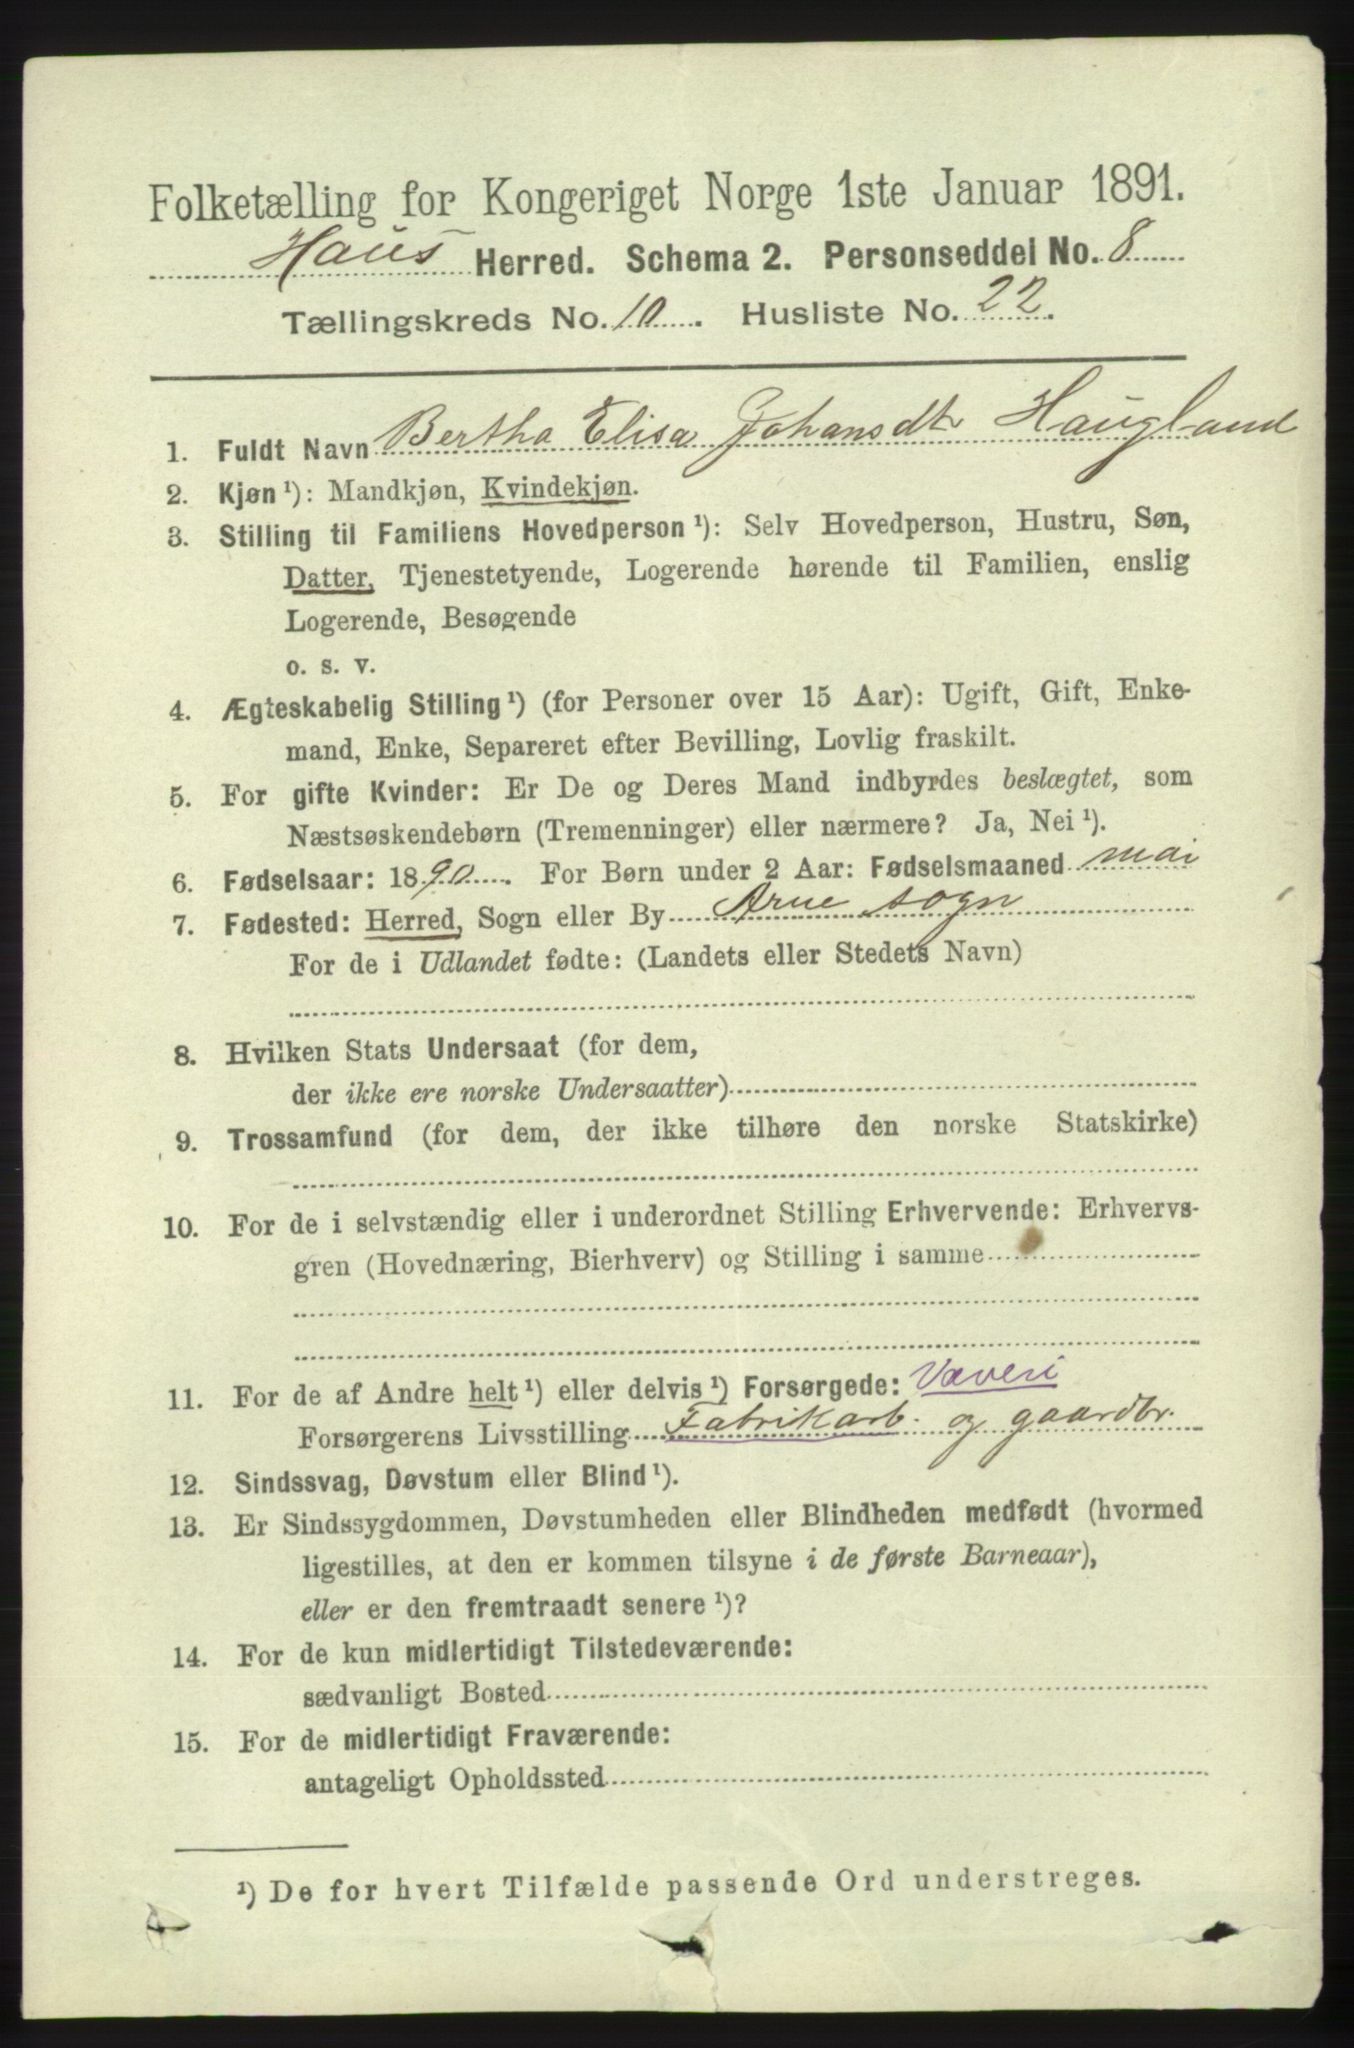 Folketælling for Kongeriget Norge 1ste Januar 1891.
Haus Herred. Schema 2. Personseddel No. 8
Tællingskreds No. 10. Husliste No. 22.
1. Fuldt Navn Bertha Elisa Johansdtr Haugland
2. Kjøn ¹): Mandkjøn, Kvindekjøn.
3. Stilling til Familiens Hovedperson ¹): Selv Hovedperson, Hustru, Søn,
Datter, Tjenestetyende, Logerende hørende til Familien, enslig
Logerende, Besøgende
o. s. v.
4. Ægteskabelig Stilling ¹) (for Personer over 15 Aar): Ugift, Gift, Enke-
mand, Enke, Separeret efter Bevilling, Lovlig fraskilt.
5. For gifte Kvinder: Er De og Deres Mand indbyrdes beslægtet, som
Næstsøskendebørn (Tremenninger) eller nærmere? Ja, Nei ¹).
6. Fødselsaar: 1890. For Børn under 2 Aar: Fødselsmaaned mai
7. Fødested: Herred, Sogn eller By Arne sogn
For de i Udlandet fødte: (Landets eller Stedets Navn)
8. Hvilken Stats Undersaat (for dem,
der ikke ere norske Undersaatter)
9. Trossamfund (for dem, der ikke tilhøre den norske Statskirke)
10. For de i selvstændig eller i underordnet Stilling Erhvervende: Erhvervs-
gren (Hovednæring, Bierhverv) og Stilling i samme
11. For de af Andre helt ¹) eller delvis ¹) Forsørgede: Væveri
Forsørgerens Livsstilling Fabrikarb. og gaardbr.
12. Sindssvag, Døvstum eller Blind ¹).
13. Er Sindssygdommen, Døvstumheden eller Blindheden medfødt (hvormed
ligestilles, at den er kommen tilsyne i de første Barneaar),
eller er den fremtraadt senere ¹)?
14. For de kun midlertidigt Tilstedeværende:
sædvanligt Bosted
15. For de midlertidigt Fraværende:
antageligt Opholdssted
¹) De for hvert Tilfælde passende Ord understreges.